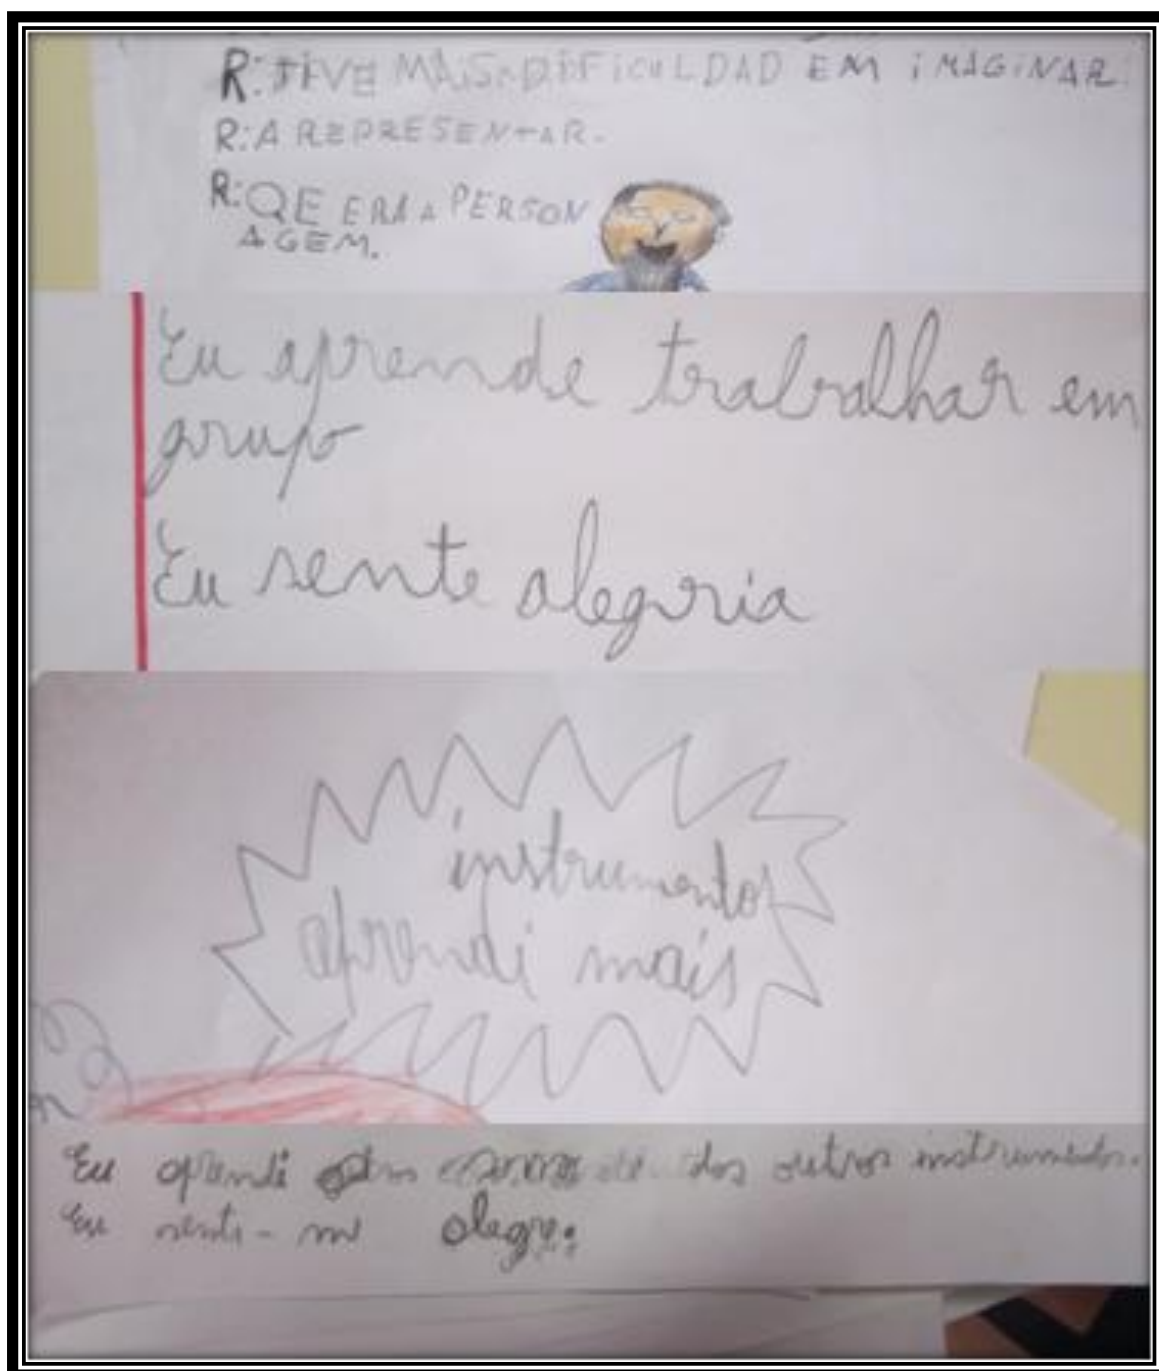 R: TIVE MAIS DIFICULDAD EM iMAGiNAR.
R: A REPRESENTAR.
R: QE ERA A PERSON
AGEM.
Eu aprende trabalhar em
grupo
Eu sente alegria
instrumentos
aprendi mais
Eu aprendi dos outros instrumentos.
Eu senti-me alegre.